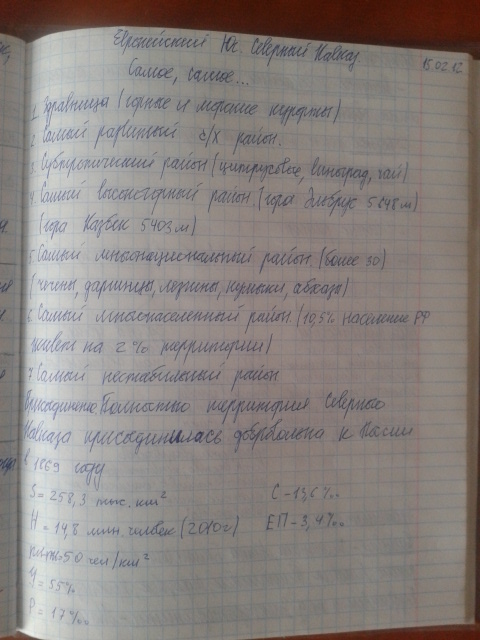 Европейский Юг. Северный Кавказ.
15.02.12
Самое, самое...
1. Здравницы (горные и морские курорты)
2. Самый развитый с/х район.
3. Субтропический район (цитрусовые, виноград, чай)
4. Самый высокогорный район. (гора Эльбрус 5648м)
(гора Казбек 5403м)
5. Самый многонациональный район. (более 30)
(чечены, даргинцы, лезгины, кумыки, абхазы)
6. Самый многонаселенный район. (10,5% население РФ
живет на 2% территории)
7. Самый нестабильный район
Присоединение Полностью территория Северного
Кавказа присоединилась добровольно к России
в 1869 году
S = 258,3 тыс. км²
С - 13,6‰
Н = 14,8 млн. человек (2010г)
ЕП - 3,4‰
50 чел/км²
У = 55%
Р = 17‰